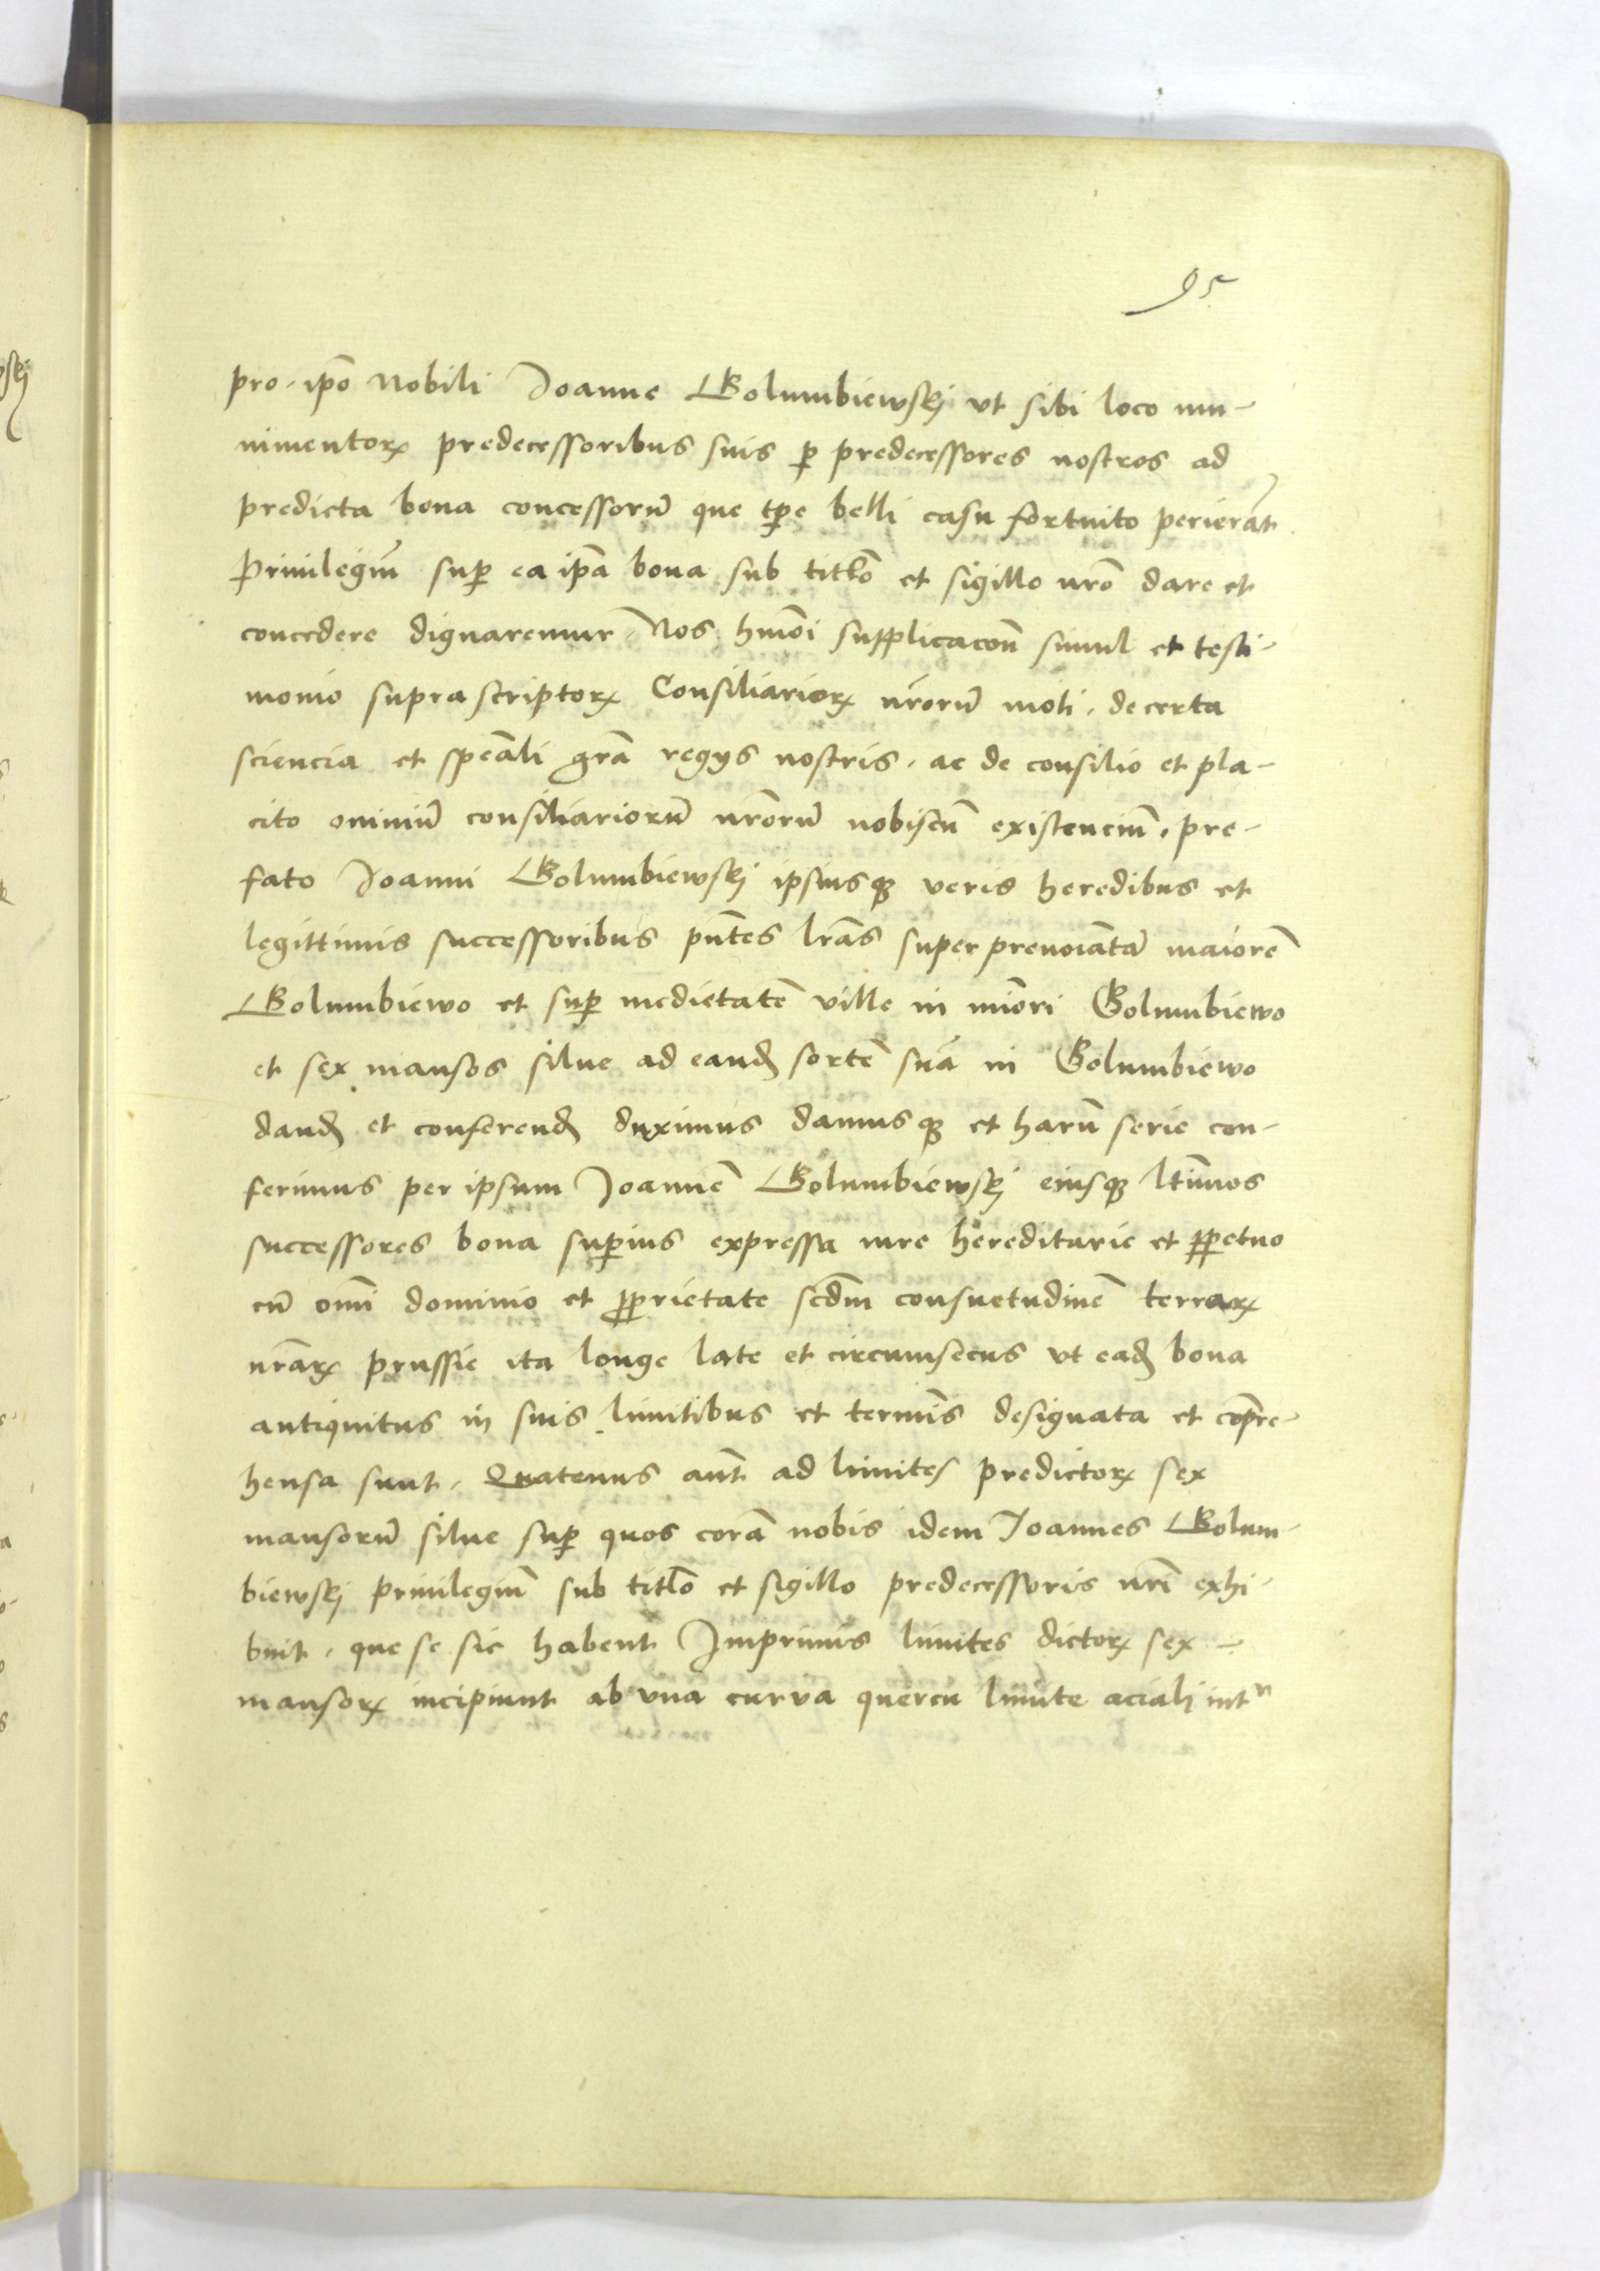 95
pro ipo Nobili Joanne Golumbiewskj vt sibi loco mu-
nimentoꝝ predecessoribus suis ꝑ predecessores nostros ad
predicta bona concessorū que tp̄e belli casu fortuito perierāt
Priuilegiū suꝑ ea ip̄a bona sub titlo et sigillo nr̄o dare et
concedere dignaremur Nos hmōi supplicacōn simul et testi-
monio supra scriptoꝝ Consiliarioꝝ nr̄orū moti. de certa
sciencia et speāli gr̄a regys nostris. ac de consilio et pla-
cito omniū consiliariorū nr̄orū nobiscū existenciū. pre-
fato Joanni Golumbiewskj ipsiusqꝫ veris heredibus et
legittimis successoribus pn̄tes lr̄as super prenoiatā maiorē
Golumbiewo et suꝑ medietatē ville in mīori Golumbiewo
et sex mansos silue ad eandꝫ sortē suā in Golumbiewo
dandꝫ et conferendꝫ duximus damusqꝫ et harū serie con-
ferimus per ipsum Joannē Golumbiewskj eiusqꝫ ltīmos
successores bona suꝑius expressa iure hereditarie et ꝑpetuo
cū om̄i dominio et ꝓprietate scdm consuetudinē terraꝝ
nr̄aꝝ prussie ita longe late et circumsecus vt eadꝫ bona
antiquitus in suis limitibus et termīs designata et cōpre-
hensa sunt. Quatenus aūt ad limites predictoꝝ sex
mansorū silue suꝑ quos corā nobis idem Joannes Golum-
biewskj priuilegiū sub titlo et sigillo predecessoris nr̄i exhi-
buit. que se sic habent Imprimis limites dictoꝝ sex
mansoꝝ incipiunt ab vna curva quercu limite aciali int